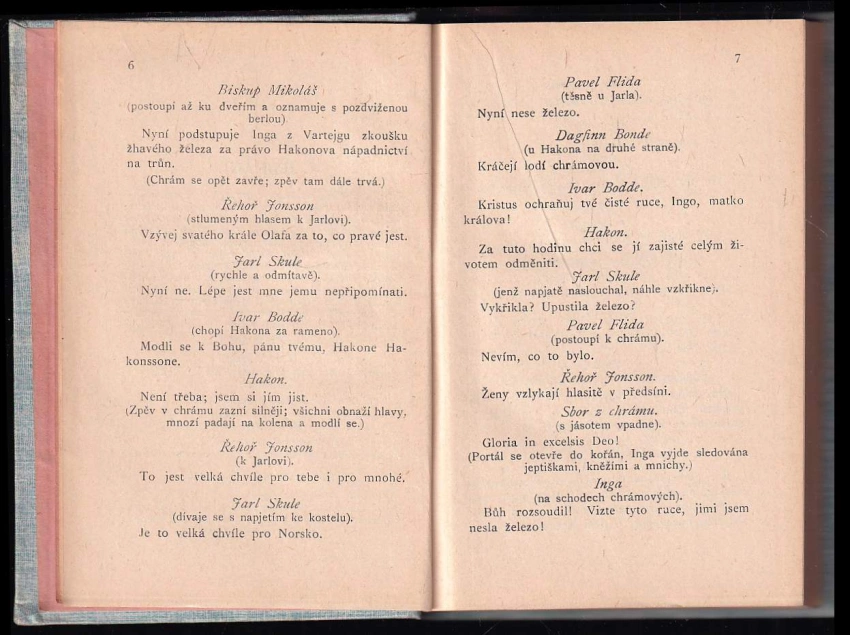 6
Biskup Mikoláš
(postoupí až ku dveřím a oznamuje s pozdviženou
berlou)
Nyní podstupuje Inga z Vartejgu zkoušku
žhavého železa za právo Hakonova nápadnictví
na trůn.
(Chrám se opět zavře; zpěv tam dále trvá.)
Řehoř Jonsson
(stlumeným hlasem k Jarlovi).
Vzývej svatého krále Olafa za to, co pravé jest.
Jarl Skule
(rychle a odmítavě).
Nyní ne. Lépe jest mne jemu nepřipomínati.
Ivar Bodde
(chopí Hakona za rameno).
Modli se k Bohu, pánu tvému, Hakone Ha-
konssone.
Hakon.
Není třeba; jsem si jím jist.
(Zpěv v chrámu zazní silněji; všichni obnaží hlavy,
mnozí padají na kolena a modlí se.)
Řehoř Jonsson
(k Jarlovi).
To jest velká chvíle pro tebe i pro mnohé.
Jarl Skule
(dívaje se s napjetím ke kostelu).
Je to velká chvíle pro Norsko.
7
Pavel Flida
(těsně u Jarla).
Nyní nese železo.
Dagfinn Bonde
(u Hakona na druhé straně).
Kráčejí lodí chrámovou.
Ivar Bodde.
Kristus ochraňuj tvé čisté ruce, Ingo, matko
králova!
Hakon.
Za tuto hodinu chci se jí zajisté celým ži-
votem odměniti.
Jarl Skule
(jenž napjatě naslouchal, náhle vzkřikne).
Vykřikla? Upustila železo?
Pavel Flida
(postoupí k chrámu).
Nevím, co to bylo.
Řehoř Jonsson.
Ženy vzlykají hlasitě v předsíni.
Sbor z chrámu.
(s jásotem vpadne).
Gloria in excelsis Deo!
(Portál se otevře do kořán, Inga vyjde sledována
jeptiškami, kněžími a mnichy.)
Inga
(na schodech chrámových).
Bůh rozsoudil! Vizte tyto ruce, jimi jsem
nesla železo!